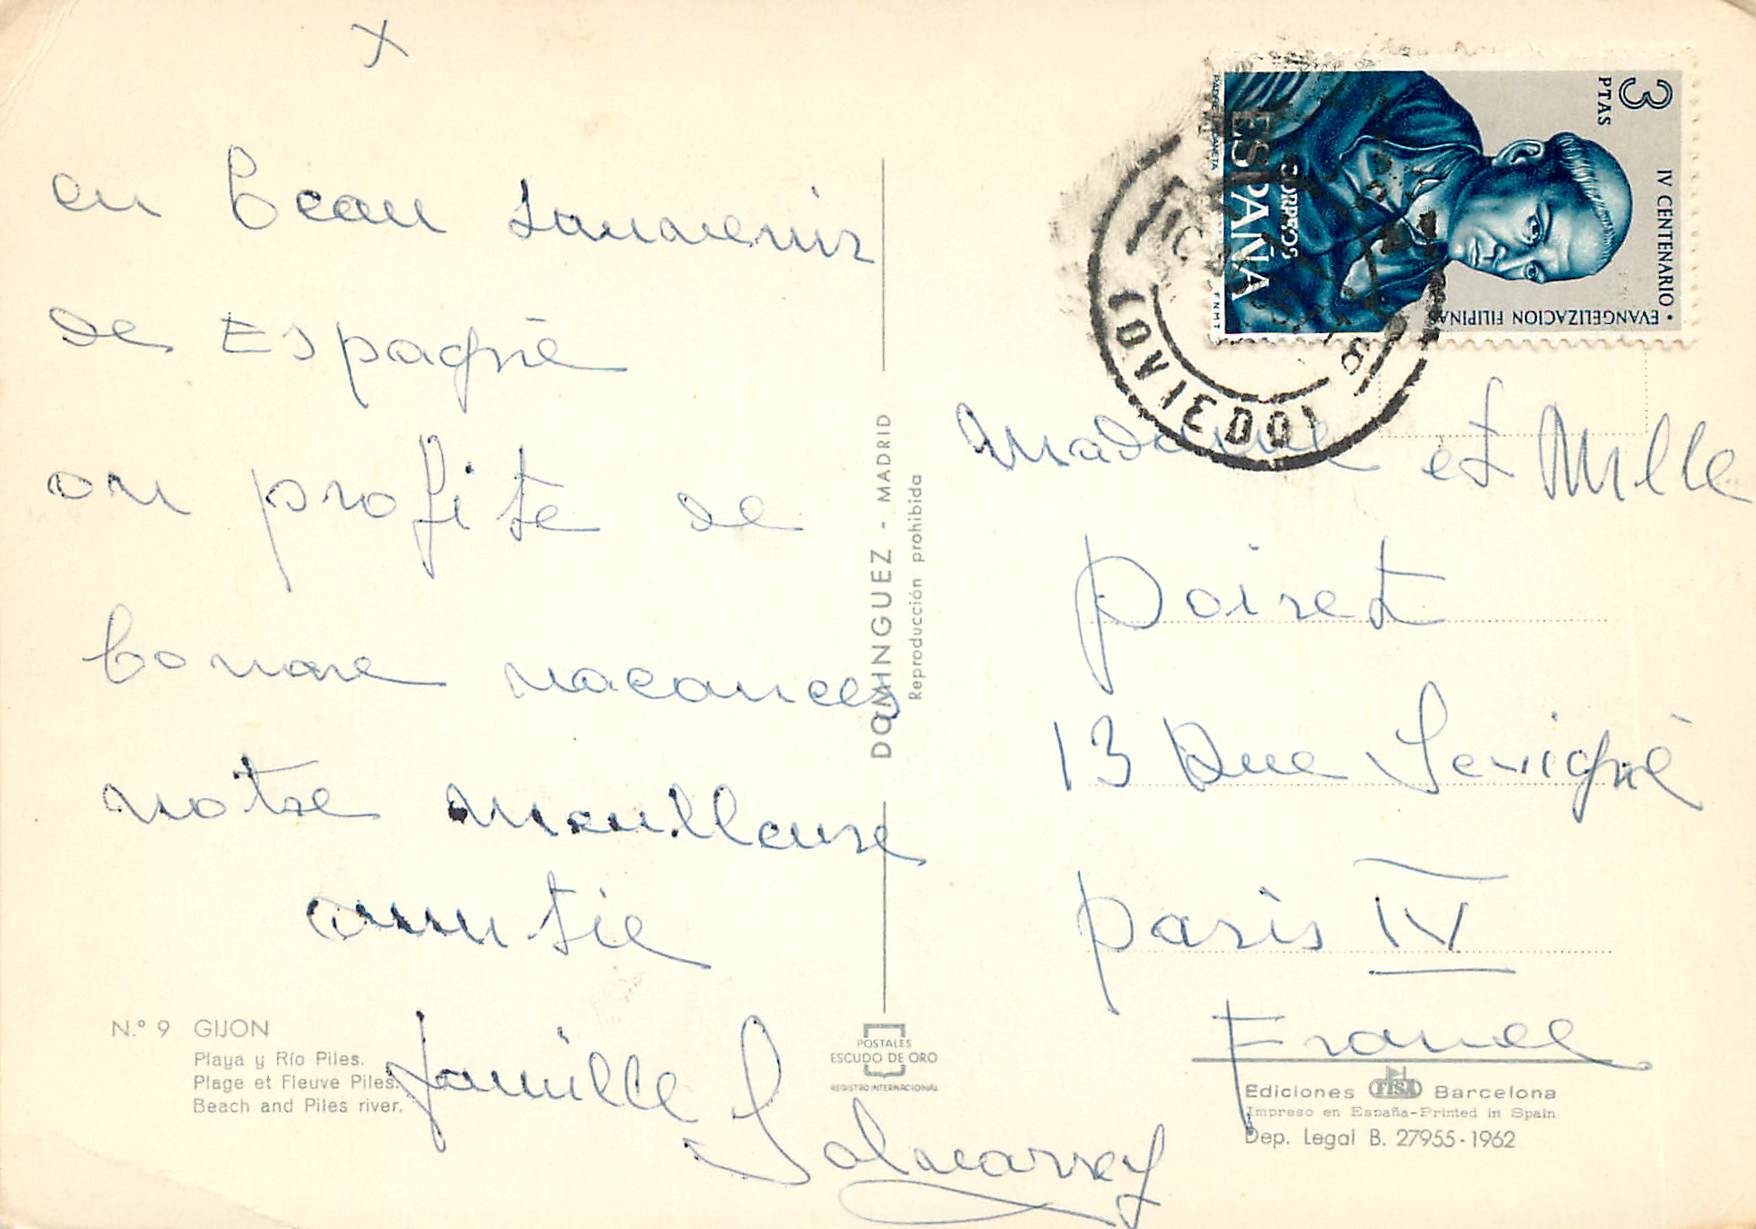 en beau souvenir
de Espagne
on profite de
bonne vacances
notre meulleure
amitie
famille
N.º 9 GIJON
Playa y Río Piles.
Plage et Fleuve Piles.
Beach and Piles river.
DOMINGUEZ - MADRID
Reproducción prohibida
POSTALES
ESCUDO DE ORO
REGISTRO INTERNACIONAL
3
PTAS
IV CENTENARIO • EVANGELIZACION FILIPINAS
CORREOS
ESPAÑA
F.N.M.T
(OVIEDO)
Madame et Mlle
Poiret
13 Rue Sevigné
Paris IV
France
Ediciones FISA Barcelona
Impreso en España-Printed in Spain
Dep. Legal B. 27955-1962